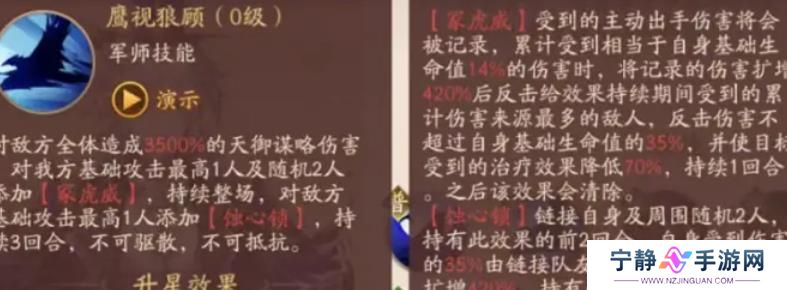 鹰视狼顾（0级）
军师技能
演示
对敌方全体造成3500%的天御谋略伤害
，对我方基础攻击最高1人及随机2人
添加【冢虎威】，持续整场，对敌方
基础攻击最高1人添加【蚀心锁】，持
续3回合，不可驱散，不可抵抗。
升星效果
【冢虎威】受到的主动出手伤害将会
被记录，累计受到相当于自身基础生
命值14%的伤害时，将记录的伤害扩增
420%后反击给效果持续期间受到的累
计伤害来源最多的敌人，反击伤害不
超过自身基础生命值的35%，并使目标
受到的治疗效果降低70%，持续1回合
。之后该效果会清除。
【蚀心锁】链接自身及周围随机2人，
持有此效果的前2回合，自身受到伤害
的35%由链接队友
扩增420%，持有
普
宁静手游网
WWW.NZJINGUAN.COM